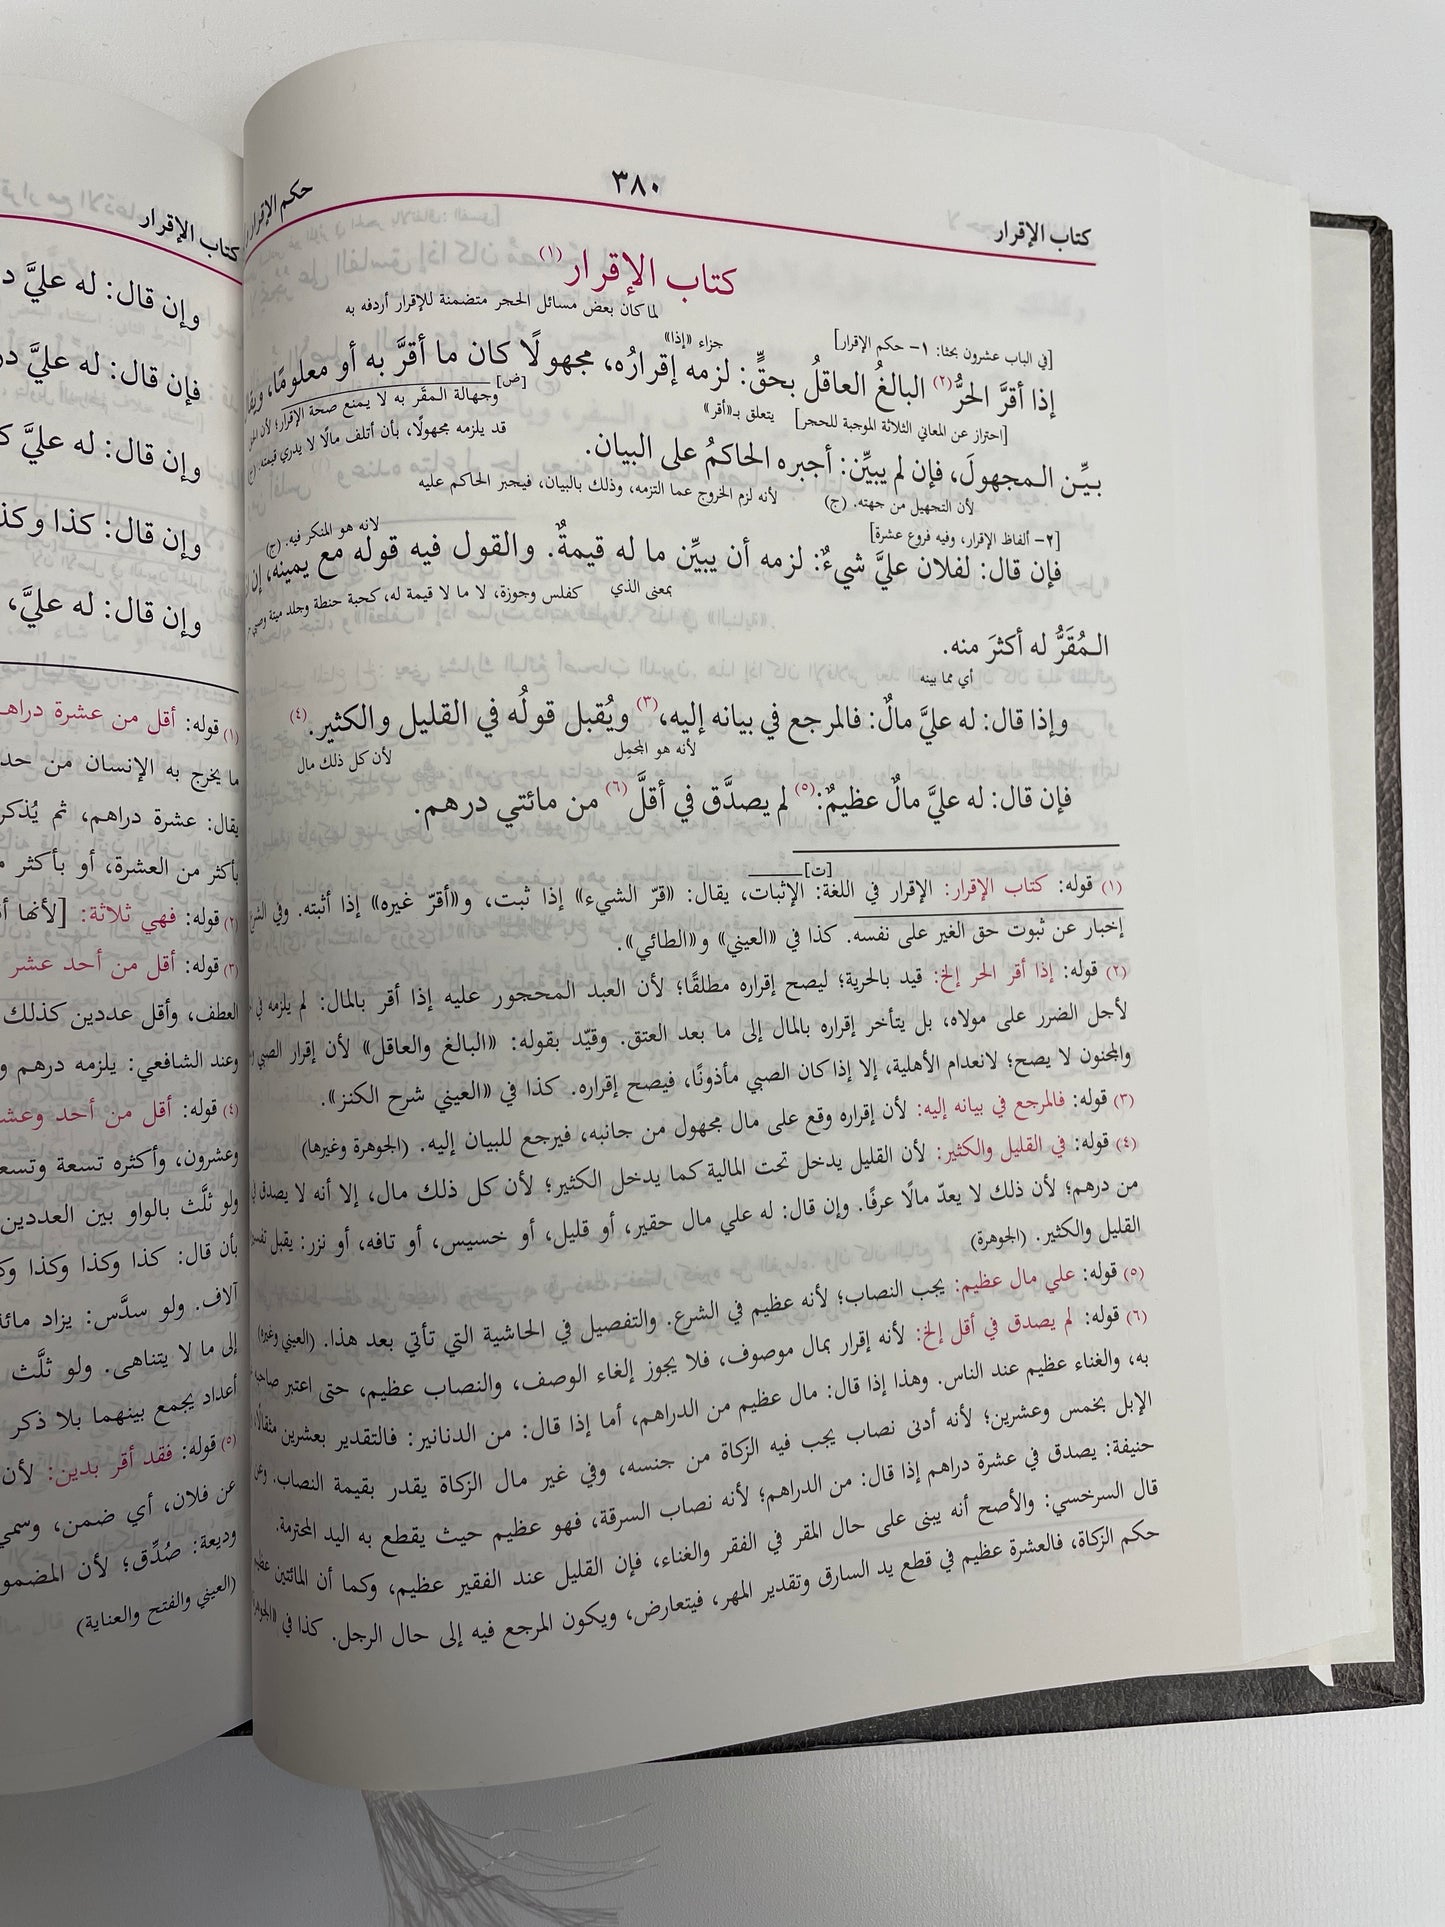 كتاب الإقرار
٣٨٠
حكم الإقرار
كتاب الإقرار (١)
لما كان بعض مسائل الحجر متضمنة للإقرار أردفه به
[في الباب عشرون بحثا: ١- حكم الإقرار]
جزاء «إذا»
إذا أقرَّ الحرُّ(٢) البالغُ العاقلُ بحقٍّ: لزمه إقرارُه، مجهولًا كان ما أقرَّ به أو معلومًا،
[احتراز عن المعاني الثلاثة الموجبة للحجر]
يتعلق بـ«أقر»
[ض] وجهالة المقَر به لا يمنع صحة الإقرار؛ لأن
قد يلزمه مجهولًا، بأن أتلف مالًا لا يدري قيمته. (ج)
بيِّن المجهولَ، فإن لم يبيِّن: أجبره الحاكمُ على البيان.
لأن التجهيل من جهته. (ج)
لأنه لزم الخروج عما التزمه، وذلك بالبيان، فيجبر الحاكم عليه
[٢- ألفاظ الإقرار، وفيه فروع عشرة]
لانه هو المنكر فيه. (ج)
فإن قال: لفلان عليَّ شيءٌ: لزمه أن يبيِّن ما له قيمةٌ. والقول فيه قوله مع يمينه، إن
بمعنى الذي
كفلس وجوزة، لا ما لا قيمة له، كحبة حنطة وجلد ميتة وصبي
المُقَرُّ له أكثرَ منه.
أي مما بينه
وإذا قال: له عليَّ مالٌ: فالمرجع في بيانه إليه،(٣) ويُقبل قولُه في القليل والكثير.(٤)
لأنه هو المجمِل
لأن كل ذلك مال
فإن قال: له عليَّ مالٌ عظيمٌ:(٥) لم يصدَّق في أقلَّ(٦) من مائتي درهم.
[ت]
(١) قوله: كتاب الإقرار: الإقرار في اللغة: الإثبات، يقال: «قرّ الشيء» إذا ثبت، و«أقرّ غيره» إذا أثبته. وفي
إخبار عن ثبوت حق الغير على نفسه. كذا في «العيني» و«الطائي».
(٢) قوله: إذا أقر الحر إلخ: قيد بالحرية؛ ليصح إقراره مطلقًا؛ لأن العبد المحجور عليه إذا أقر بالمال: لم يلزمه في
لأجل الضرر على مولاه، بل يتأخر إقراره بالمال إلى ما بعد العتق. وقيّد بقوله: «البالغ والعاقل» لأن إقرار الصبي
والمجنون لا يصح؛ لانعدام الأهلية، إلا إذا كان الصبي مأذونًا، فيصح إقراره. كذا في «العيني شرح الكنز».
(٣) قوله: فالمرجع في بيانه إليه: لأن إقراره وقع على مال مجهول من جانبه، فيرجع للبيان إليه. (الجوهرة وغيرها)
(٤) قوله: في القليل والكثير: لأن القليل يدخل تحت المالية كما يدخل الكثير؛ لأن كل ذلك مال، إلا أنه لا يصدق في
من درهم؛ لأن ذلك لا يعدّ مالًا عرفًا. وإن قال: له علي مال حقير، أو قليل، أو خسيس، أو تافه، أو نزر: يقبل
القليل والكثير. (الجوهرة)
(٥) قوله: علي مال عظيم: يجب النصاب؛ لأنه عظيم في الشرع. والتفصيل في الحاشية التي تأتي بعد هذا. (العيني وغيره)
(٦) قوله: لم يصدق في أقل إلخ: لأنه إقرار بمال موصوف، فلا يجوز إلغاء الوصف، والنصاب عظيم، حتى اعتبر
به، والغناء عظيم عند الناس. وهذا إذا قال: مال عظيم من الدراهم، أما إذا قال: من الدنانير: فالتقدير بعشرين
الإبل بخمس وعشرين؛ لأنه أدنى نصاب يجب فيه الزكاة من جنسه، وفي غير مال الزكاة يقدر بقيمة النصاب.
حنيفة: يصدق في عشرة دراهم إذا قال: من الدراهم؛ لأنه نصاب السرقة، فهو عظيم حيث يقطع به اليد المحترمة.
قال السرخسي: والأصح أنه يبنى على حال المقر في الفقر والغناء، فإن القليل عند الفقير عظيم، وكما أن المائتين
حكم الزكاة، فالعشرة عظيم في قطع يد السارق وتقدير المهر، فيتعارض، ويكون المرجع فيه إلى حال الرجل. كذا في
كتاب الإقرار
وإن قال: له عليَّ
فإن قال: له عليَّ
وإن قال: له عليَّ
وإن قال: كذا
وإن قال: له عليَّ،
(١) قوله: أقل من عشرة
ما يخرج به الإنسان من
يقال: عشرة دراهم، ثم
بأكثر من العشرة، أو بأكثر
(٢) قوله: فهي ثلاثة: [لأنها
(٣) قوله: أقل من أحد عشر
العطف، وأقل عددين كذلك
وعند الشافعي: يلزمه درهم
(٤) قوله: أقل من أحد
وعشرون، وأكثره تسعة
ولو ثلَّث بالواو بين العددين
بأن قال: كذا وكذا وكذا
آلاف. ولو سدَّس: يزاد
إلى ما لا يتناهى. ولو ثلَّث
أعداد يجمع بينهما بلا ذكر
(٥) قوله: فقد أقر بدين: لأن
عن فلان، أي ضمن،
وديعة: صُدِّق؛ لأن
(العيني والفتح والعناية)